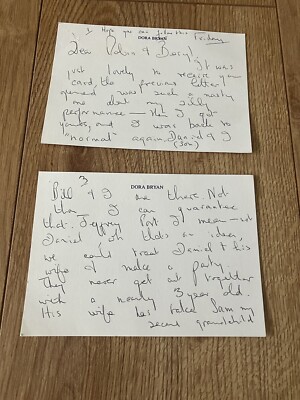 I Hope you can follow this
Friday
DORA BRYAN
Dear Robin & Barry!
It was
just lovely to receive your
card, the previous letter I
opened was such a nasty
one about my silly
performance — then I got
yours, and I was back to
"normal" again. Daniel & I
(son)
3
DORA BRYAN
Bill & I are there. Not
that I can guarantee
that. Jeffrey Port I mean — not
Daniel, oh that's an idea,
we could treat Daniel & his
wife & make a party.
They never get out together
with a nearly 3 year old.
His wife has called Sam my
second grandchild